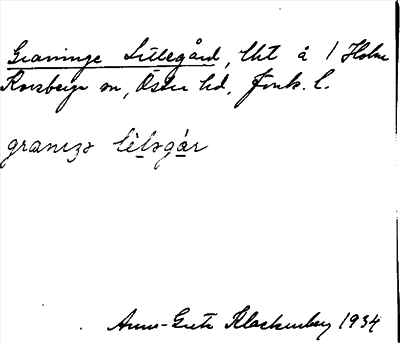 Graninge Lillegård, lht å 1 Holm
Korsberga sn, Östra hd, Jönk. l.
granıŋə lìləgár
Anna-Greta Klackenberg 1934